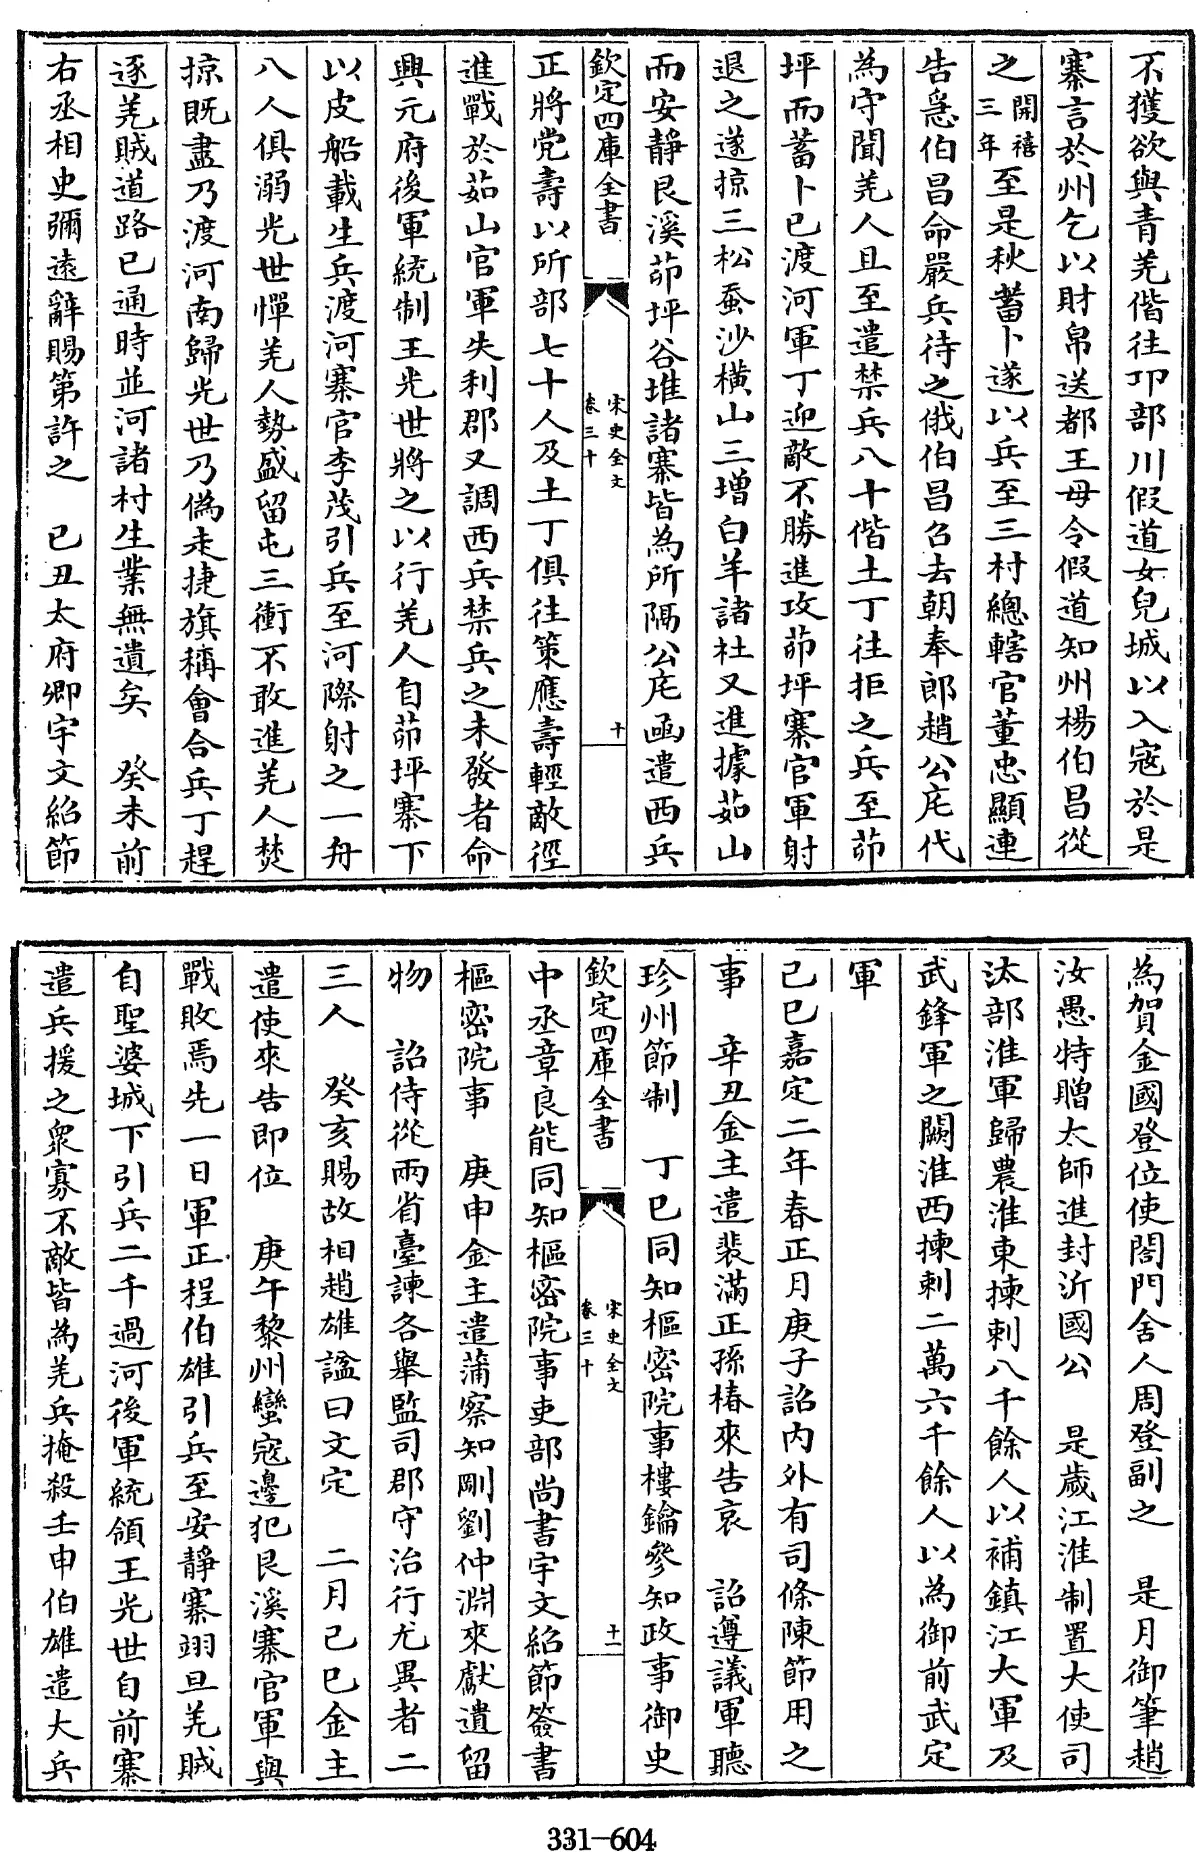 不獲欲與青羌偕往邛部川假道女兒城以入寇於是
寨言於州乞以財帛送都王母令假道知州楊伯昌從
之開禧三年至是秋蓄卜遂以兵至三村總轄官董忠顯連
告急伯昌命嚴兵待之俄伯昌召去朝奉郎趙公庀代
為守聞羌人且至遣禁兵八十偕土丁往拒之兵至茆
坪而蓄卜已渡河軍丁迎敵不勝進攻茆坪寨官軍射
退之遂掠三松蚕沙橫山三增白羊諸杜又進據茹山
而安靜艮溪茆坪谷堆諸寨皆為所隔公庀亟遣西兵
欽定四庫全書
宋史全文
卷三十
十
正將党壽以所部七十人及土丁俱往策應壽輕敵徑
進戰於茹山官軍失利郡又調西兵禁兵之未發者命
興元府後軍統制王光世將之以行羌人自茆坪寨下
以皮船載生兵渡河寨官李茂引兵至河際射之一舟
八人俱溺光世憚羌人勢盛留屯三衝不敢進羌人焚
掠既盡乃渡河南歸光世乃偽走捷旗稱會合兵丁趕
逐羌賊道路已通時並河諸村生業無遺矣　癸未前
右丞相史彌遠辭賜第許之　己丑太府卿宇文紹節
為賀金國登位使閤門舍人周登副之　是月御筆趙
汝愚特贈太師進封沂國公　是歲江淮制置大使司
汰部淮軍歸農淮東揀刺八千餘人以補鎮江大軍及
武鋒軍之闕淮西揀刺二萬六千餘人以為御前武定
軍
己巳嘉定二年春正月庚子詔內外有司條陳節用之
事　辛丑金主遣裴滿正孫椿來告哀　詔遵議軍聽
珍州節制　丁巳同知樞密院事樓鑰參知政事御史
欽定四庫全書
宋史全文
卷三十
十一
中丞章良能同知樞密院事吏部尚書宇文紹節簽書
樞密院事　庚申金主遣蒲察知剛劉仲淵來獻遺留
物　詔侍從兩省臺諫各舉監司郡守治行尤異者二
三人　癸亥賜故相趙雄諡曰文定　二月己巳金主
遣使來告即位　庚午黎州蠻寇邊犯艮溪寨官軍與
戰敗焉先一日軍正程伯雄引兵至安靜寨翊旦羌賊
自聖婆城下引兵二千過河後軍統領王光世自前寨
遣兵援之衆寡不敵皆為羌兵掩殺壬申伯雄遣大兵
331-604